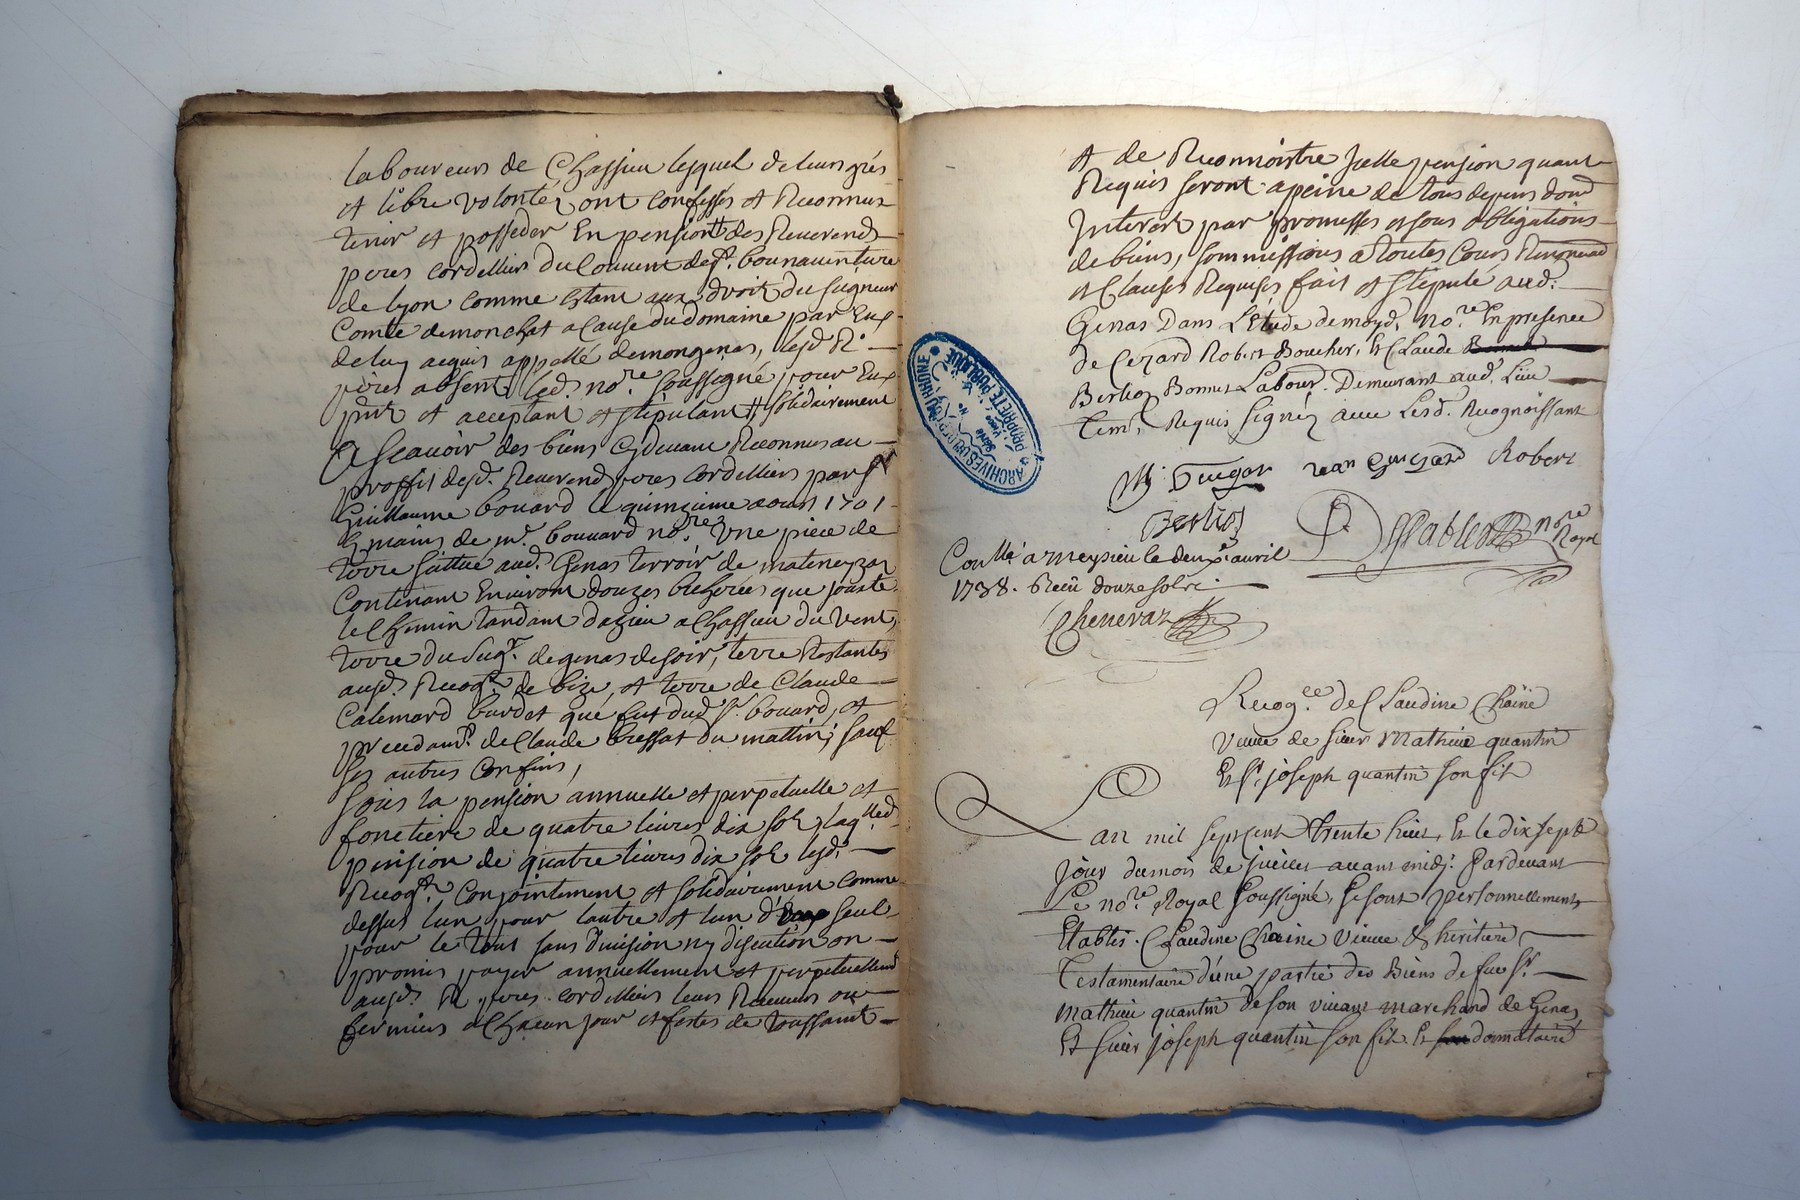 laboureurs de Chassieu lesquels de leurs grés
et libre volonté, ont confessés et Reconnus
tenir et posseder En pension # des Reverends
peres cordelliers du Couvent de St. bonnaventure
de lyon comme estant aux droits du seigneur
Comte demonchat a Cause du domaine par Eux
de luy acquis appellé demongenas, lesd. Rds
pères absents led. nore. soussigné pour Eux
pnt et acceptant et stipulant # solidairement
A Scavoir des biens Cydevant Reconnus au
proffit desd. Reverends peres Cordelliers par Sr
Guillaume bouard le quinzieme aoust 1701
Es mains de me. bouvard nore. Une piece de
terre sittue aud. Genas terroir de mateneyzar
Contenant Environ douzes bicherées que jouxte
le Chemin tandant dazieu a Chassieu du Vent,
terre du Seigr. de genas de soir, terre Restantes
ausd. Recogts. de bize, et terre de Claude
Calemard burdet que fut dud. Sr. bouard, et
precedamt. de Claude bressat du mattin, sauf
ses autres Confins,
Sous la pension annuelle et perpetuelle et
fonciere de quatre livres dix sols, laqlle. d.
pension de quatre livres dix sols lesd.
Recogts. Conjointement et solidairement comme
dessus lun pour lautre et lun d'Eux seul
pour le tout sans division ny discution on
promis payer annuellement et perpetuellemt
ausd. Rds. peres cordelliers leurs Receveurs ou
fermiers a Chacun jour et festes de toussaint
et de Reconnoistre Jcelle pension quant
Requis seront a peine de tous depens dom
Interest par promesses et sous obligations
de biens, sommissions a toutes Cours Renonciaõ
et Clauses Requises fait et stipulé aud.
Genas Dans L'Etude demoyd. nore. En presence
de Cezard Robert Boucher, Et Claude
Berlioz Bonnet Labour. Demeurant aud. Lieu
Tem. Requis signéz avec Lesd. Recognoissant
jean Guicgard Robert
Berlioz nore Royal
Conlle. a meysieu le deuxe. avril
1738. Reçu douze sols
Chenevaz
ARCHIVES DU DÉPART. DU RHÔNE
PROPRIÉTÉ PUBLIQUE
Recogce. de Claudine Chaine
Veuve de sieur Mathieu quantin
Et Sr. joseph quantin son fils
Lan mil septcent trente huit, Et le dix sept
jour du mois de avant midy. Pardevant
Le nore. Royal soussigné, se sont personnellement
Etablis. Claudine Chaine Vieuve & heritiere
Testamentaire d'une partie des Biens de feu Sr.
Mathieu quantin de son vivant marchand de Genas
Et sieur joseph quantin son fils Et donnataire